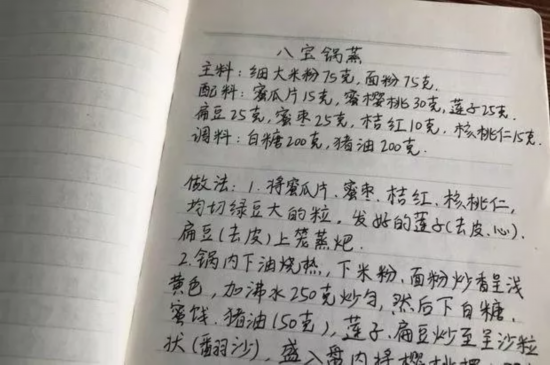 八宝锅蒸
主料:细大米粉75克,面粉75克.
配料:蜜瓜片15克,蜜樱桃30克,莲子25克.
扁豆25克,蜜枣25克,桔红10克.核桃仁15克.
调料:白糖200克,猪油200克.
做法:1.将蜜瓜片、蜜枣、桔红、核桃仁,
均切绿豆大的粒。发好的莲子(去皮、心).
扁豆(去皮)上笼蒸𤆵.
2.锅内下油烧热,下米粉、面粉炒香呈浅
黄色,加沸水250克炒匀,然后下白糖、
蜜饯、猪油(50克),莲子、扁豆炒至呈沙粒
状(翻沙),盛入盘内将樱桃摆